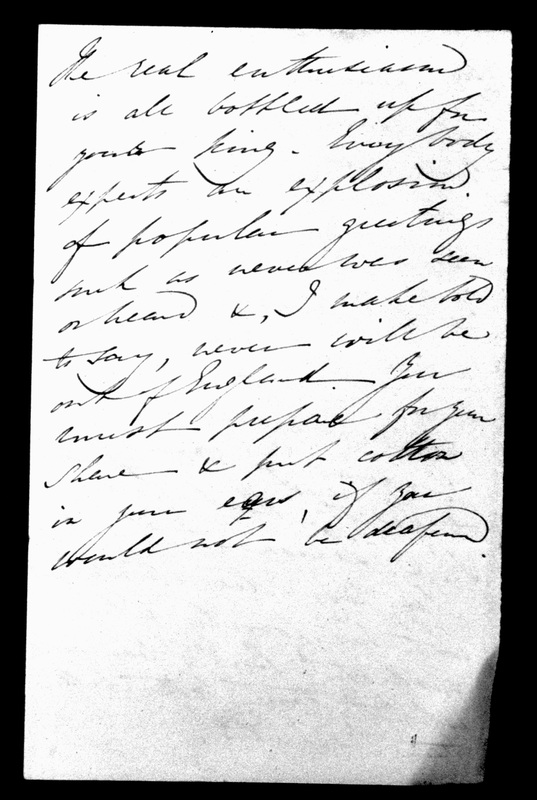 The real enthusiasm
is all bottled up for
your king. Every body
expects an explosion
of popular greetings
such as never was seen
or heard &, I make bold
to say, never will be
out of England. You
must prepare for your
share & put cotton
in your ears, if you
would not be deafened.